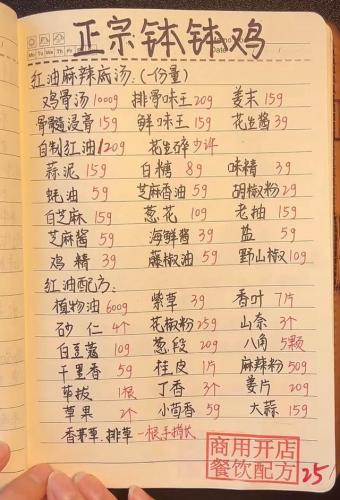 正宗钵钵鸡
红油麻辣底汤:(一份量)
鸡骨汤 1000g 排骨味王 20g 姜末 15g
骨髓浸膏 15g 鲜味王 15g 花生酱 3g
自制红油 120g 花生碎少许
蒜泥 15g 白糖 8g 味精 3g
蚝油 5g 芝麻香油 5g 胡椒粉 2g
白芝麻 15g 葱花 10g 老抽 15g
芝麻酱 5g 海鲜酱 3g 盐 5g
鸡精 3g 藤椒油 5g 野山椒 10g
红油配方:
植物油 600g 紫草 3g 香叶 7片
砂仁 4个 花椒粉 25g 山奈 3个
白豆蔻 10g 葱段 20g 八角 5颗
千里香 5g 桂皮 1片 麻辣粉 50g
荜拔 1根 丁香 3个 姜片 20g
草果 2个 小茴香 5g 大蒜 15g
香茅草.排草 一根手指长
商用开店
餐饮配方
25